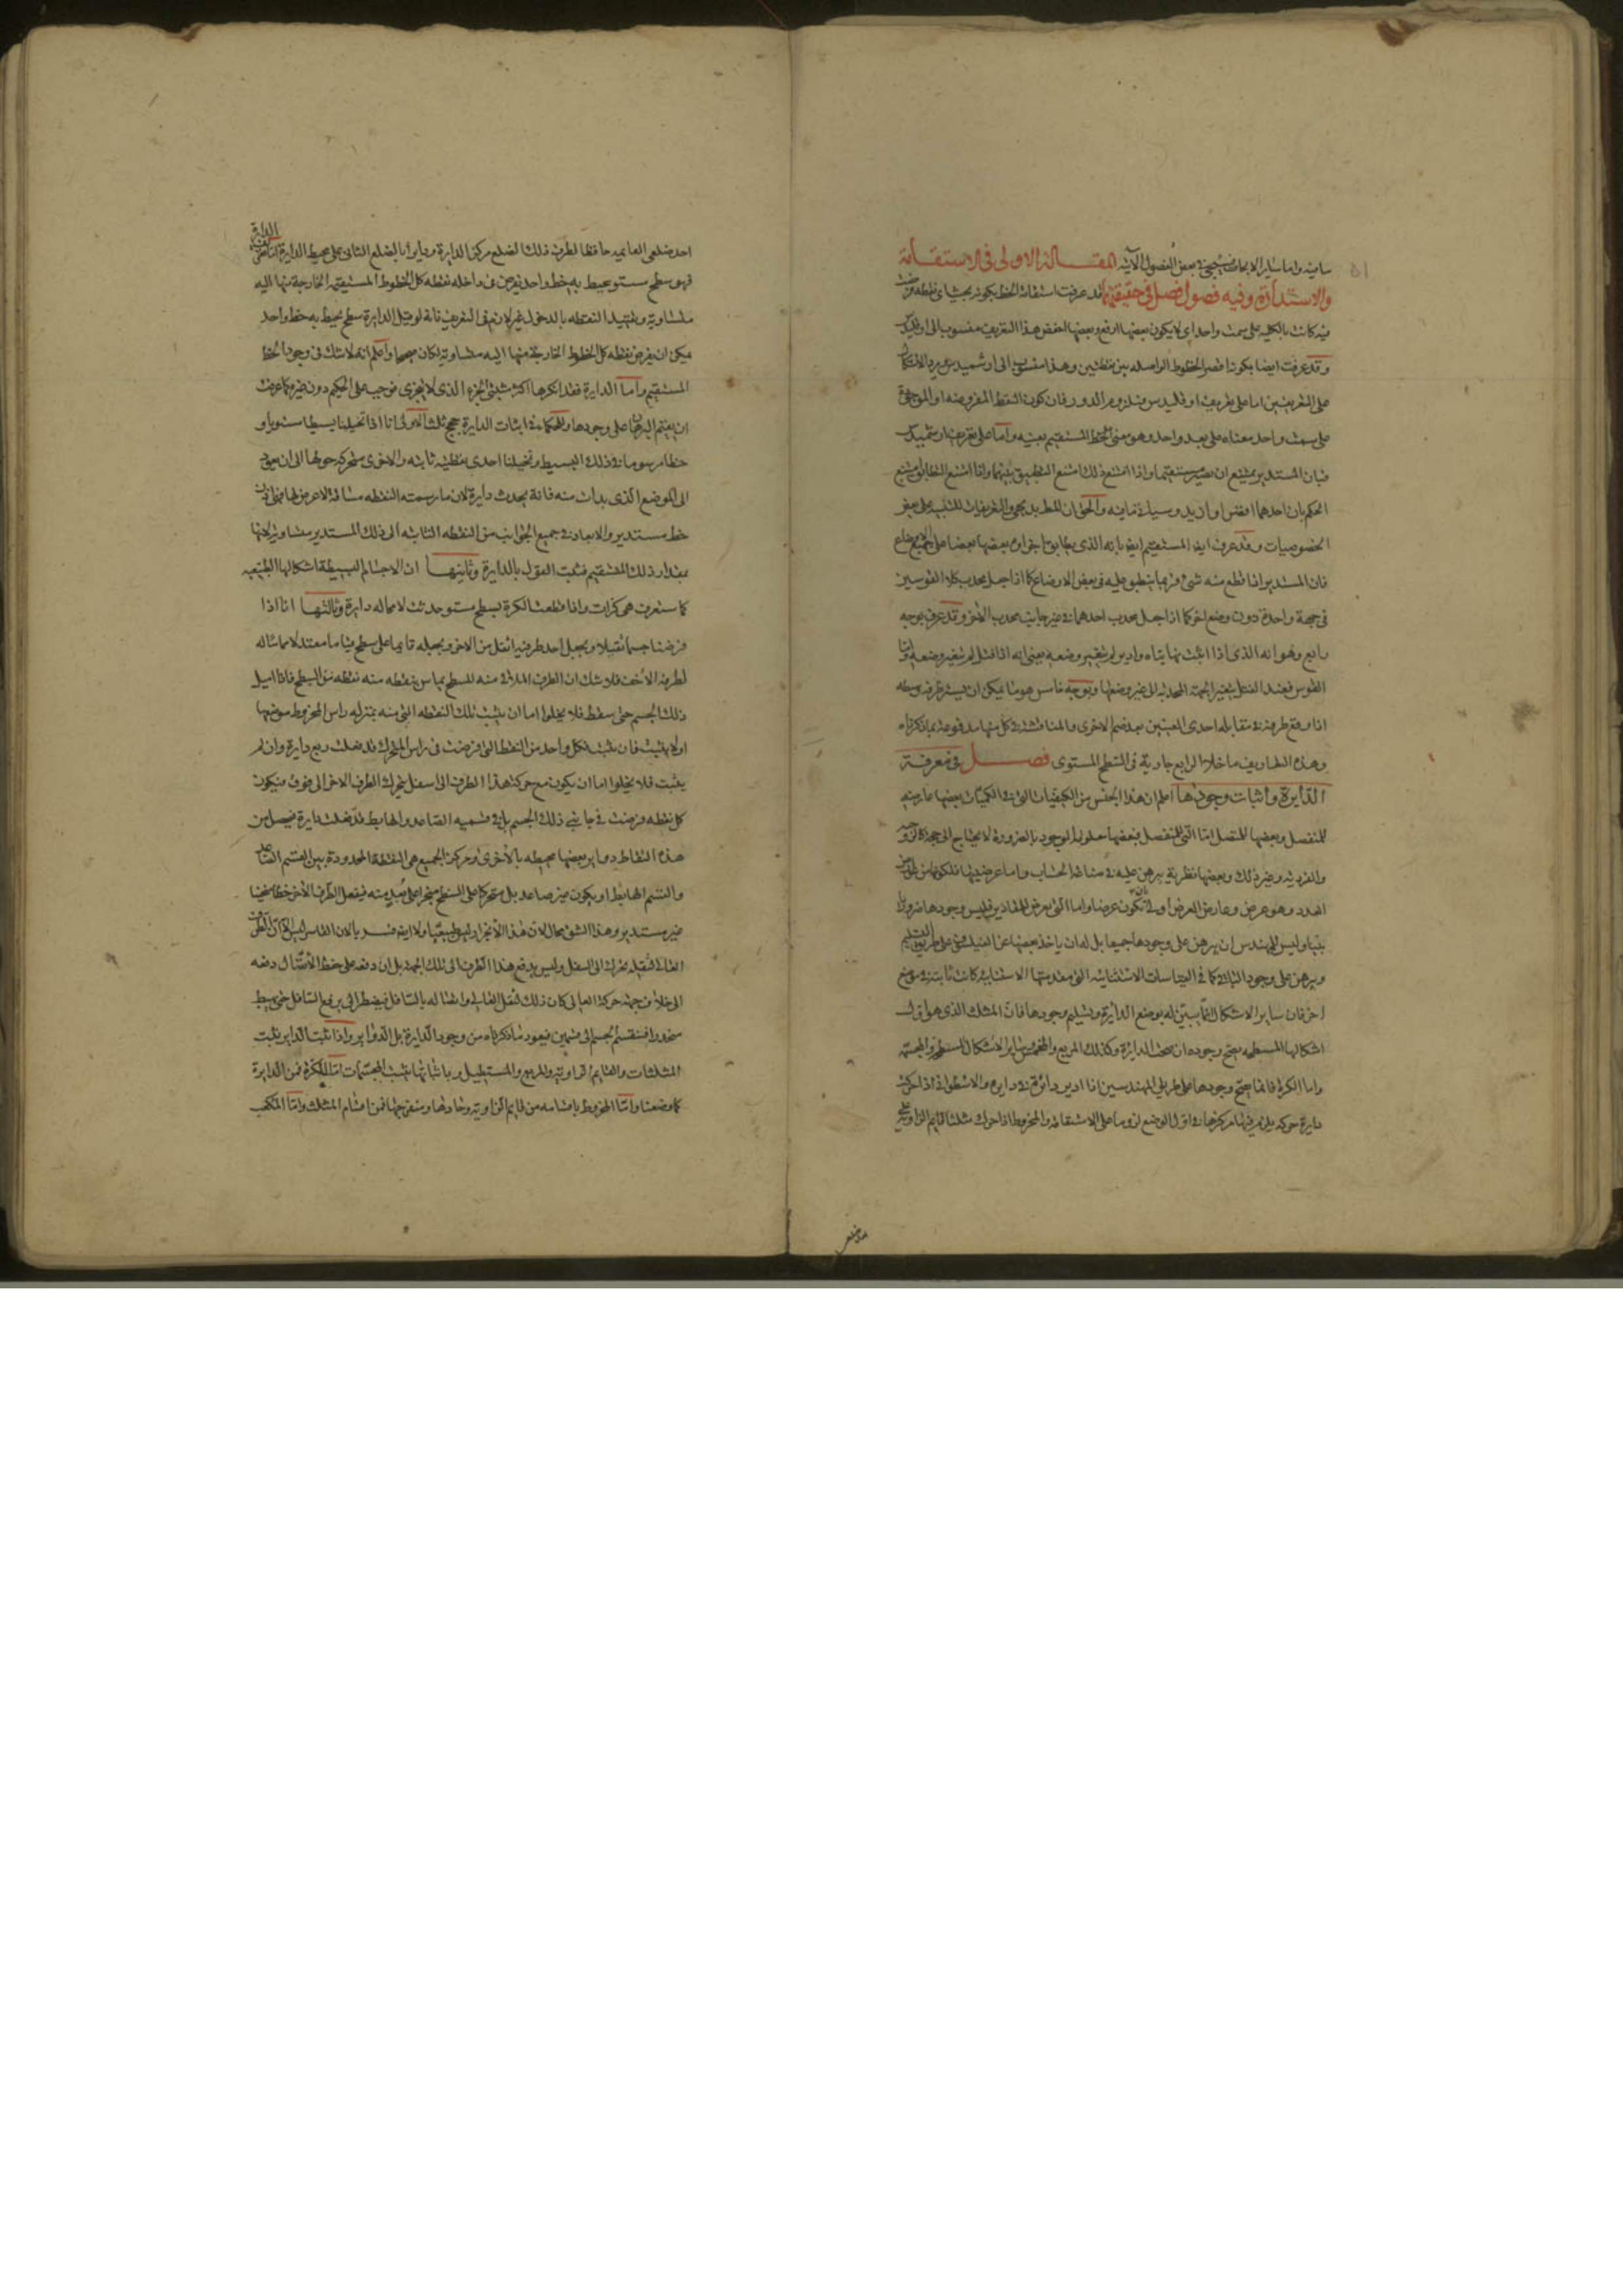 ما فيه واما ساير الابحاث فسيجيء في بعض الفصول الآتية المقالة الاولى في الاستقامة
والاستدارة وفيه فصول فصل في حقيقتهما قد عرفت استقامة الخط بكونه بحيث اى نقطة فرضت
فيه كانت بالكلية على سمت واحد اى لا يكون بعضها ارفع وبعضها اخفض هذا التعريف منسوب الى اوقليدس
وقد عرفت ايضا بكونه اقصر الخطوط الواصلة بين نقطتين وهذا منسوب الى ارشميدس
على التعريفين اما على تعريف اوقليدس فلزوم الدور فان كون النقط المفروضة
على سمت واحد معناه على بعد واحد وهو معنى الخط المستقيم بعينه واما على تعريف ارشميدس
فبان المستدير يمتنع ان يصير مستقيما واذا امتنع ذلك امتنع التطبيق بينهما واذا امتنع التطابق امتنع
الحكم بان احدهما انقص او ازيد وسياتى ما فيه والحق ان المط بديهى والتعريفات للتنبيه على بعض
الخصوصيات وقد عرف ايضا المستقيم ايضا بانه الذى يطابق اجزاؤه بعضها بعضا على جميع الاوضاع
فان المستدير اذا قطع منه شىء فربما ينطبق عليه فى بعض الاوضاع كما اذا جعل محدب كلا القوسين
فى جهة واحدة دون وضع اخر كما اذا جعل محدب احدهما فى غير جانب محدب الآخر وقد عرف بوجه
رابع وهو انه الذى اذا اثبت نهايتاه وادير لم يتغير وضعه بمعنى انه اذا فتل لم يتغير وضعه واما
القوس فعند الفتل يتغير الجهة المحدبة الى غير وضعها وبوجه خامس هو ما يمكن ان يستر طرفه وسطه
اذا وقع طرفه فى مقابلة احدى العينين بعد ضم الاخرى والمناقشة فى كل منها مدفوعة بما ذكرناه
وهذه التعاريف ما خلا الرابع جارية فى السطح المستوى فصل فى معرفة
الدايرة واثبات وجودها اعلم ان هذا الجنس من الكيفيات التى فى الكميات بعضها عارضه
للمنفصل وبعضها للمتصل اما التى للمنفصل فبعضها معلومة الوجود بالضرورة لا يحتاج الى حجة كالزوجية
والفردية وغير ذلك وبعضها نظرية يبرهن عليه فى صناعة الحساب واما عرضيتها فلكونها من عوارض
العدد وهو عرض وعارض العرض اولى بان تكون عرضا واما التى تعرض للمقادير فليس وجودها ضروريا
بينا وليس للمهندس ان يبرهن على وجودها جميعا بل له ان ياخذ بعضها عن الفيلسوف على طريق التسليم
ويبرهن على وجود الباقى كما فى القياسات الاستثنائية التى مقدمتها الاستثنائية كانت ثابتة فى موضع
اخر فان ساير الاشكال انما يتبين له بوضع الدايرة وتسليم وجودها فان المثلث الذى هو اول
اشكالها المسطحة يصح وجوده ان صحت الدايرة وكذلك المربع والمخمس وساير الاشكال المسطحة والمجسمة
واما الكرة فانما يصح وجودها على طريق المهندسين اذا ادير دائرة فى دايرة والاسطوانة اذا حركت
دايرة حركة يلزم فيها مركزها فى اول الوضع لزوما على الاستقامة والمخروط اذا حرك مثلث قايم الزاوية على
احد ضلعى القايمة حافظا لطرف ذلك الضلع مركز الدايرة ودايرا بالضلع الثانى على محيط الدايرة اما تعريف الدايرة
فهو سطح مستو يحيط به خط واحد يفرض فى داخله نقطة كل الخطوط المستقيمة الخارجة منها اليه
متساوية وتقييد النقطة بالدخول غير لازم فى التعريف فانه لو قيل الدايرة سطح يحيط به خط واحد
يمكن ان يفرض نقطة كل الخطوط الخارجة منها اليه متساوية لكان صحيحا واعلم انه لا شك فى وجود الخط
المستقيم واما الدايرة فقد انكرها اكثر مثبتى الجزء الذى لا يتجزى فوجب على الحكيم دون غيره كما عرفت
ان يقيم البرهان على وجودها وللحكماء فى اثبات الدايرة حجج ثلث الاولى انا اذا تخيلنا بسيطا مستويا و
خطا مرسوما فى ذلك البسيط وتخيلنا احدى نقطتيه ثابتة والاخرى متحركة حولها الى ان يعود
الى الموضع الذى بدات منه فانه يحدث دايرة لان ما رسمته النقطة مسافة لا عرض لها فهى اذن
خط مستدير والابعاد فى جميع الجوانب من النقطة الثابتة الى ذلك المستدير متساوية لانها
بمقدار ذلك المستقيم فثبت القول بالدايرة وثانيها ان الاجسام البسيطة اشكالها الطبيعية
كما ستعرف هى كرات واذا قطعت الكرة بسطح مستو حدثت لا محالة دايرة وثالثها انا اذا
فرضنا جسما ثقيلا ونجعل احد طرفيه اثقل من الاخر ونجعله قايما على سطح قياما معتدلا مماسا له
لطرفه الاخف فلا شك ان الطرف الملاقى منه للسطح يماس بنقطة منه نقطة من السطح فاذا اميل
ذلك الجسم حتى سقط فلا يخلوا اما ان يثبت تلك النقطة التى منه بمنزلة راس المخروط موضعها
او لا يثبت فان يثبت فكل واحد من النقط التى فرضت فى راس المتحرك قد فعلت ربع دايرة وان لم
يثبت فلا يخلوا اما ان يكون مع حركة هذا الطرف الى اسفل يتحرك الطرف الاخر الى فوق فيكون
كل نقطة فرضت فى جانبى ذلك الجسم بل فى قسميه الصاعد والهابط قد فعلت دايرة فيحصل من
هذه النقاط دواير بعضها محيطة بالاخرى ومركز الجميع هى النقطة المحدودة بين القسم الصاعد
والقسم الهابط او يكون غير صاعد بل متحركا على السطح منجرا على بعد منه فيفعل الطرف الاخر خطا منحنيا
غير مستدير وهذا الشق محال لان هذا الانجرار ليس طبيعيا ولا ايضا قسريا لان القاسر ليس الا ان الطرف
العالى لثقله تحرك الى السفل وليس يدفع هذا الطرف الى تلك الجهة بل ان دفعه على حفظ الاتصال دفعه
الى خلاف جهة حركة العالى كان ذلك لثقل العالى واتصاله بالسافل فيضطر الى ان يرفع السافل حتى يهبط
منحدرا فينقسم الجسم الى قسمين فيعود ما ذكرناه من وجود الدايرة بل الدواير واذا ثبت الداير يثبت
المثلثات والقايم الزاوية والمربع والمستطيل وباثباتها يثبت المجسمات اما الكرة فمن الدايرة
كما وضعنا واما المخروط باقسامه من قايم الزاوية وحادها ومنفرجها فمن اقسام المثلث واما المكعب